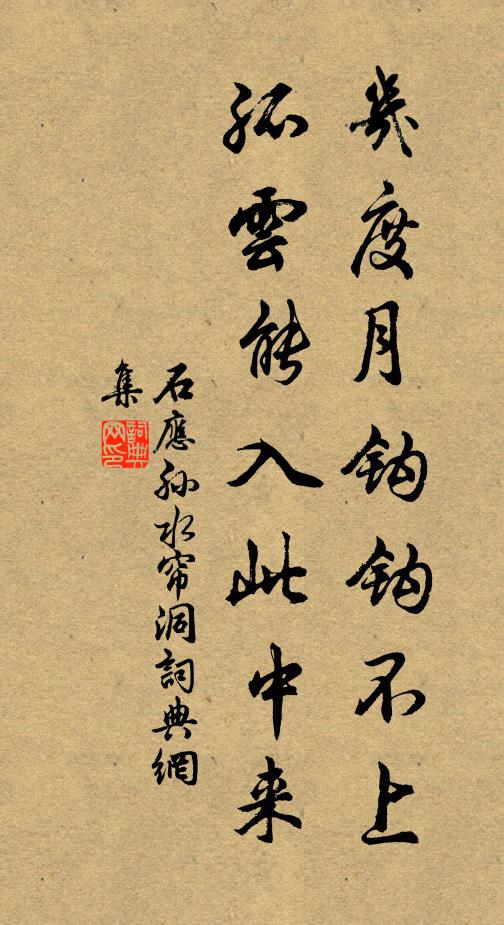 幾度月鈎鈎不上
孤雲能入此中来
石應孫水帘洞詞典網
集
詞典網印